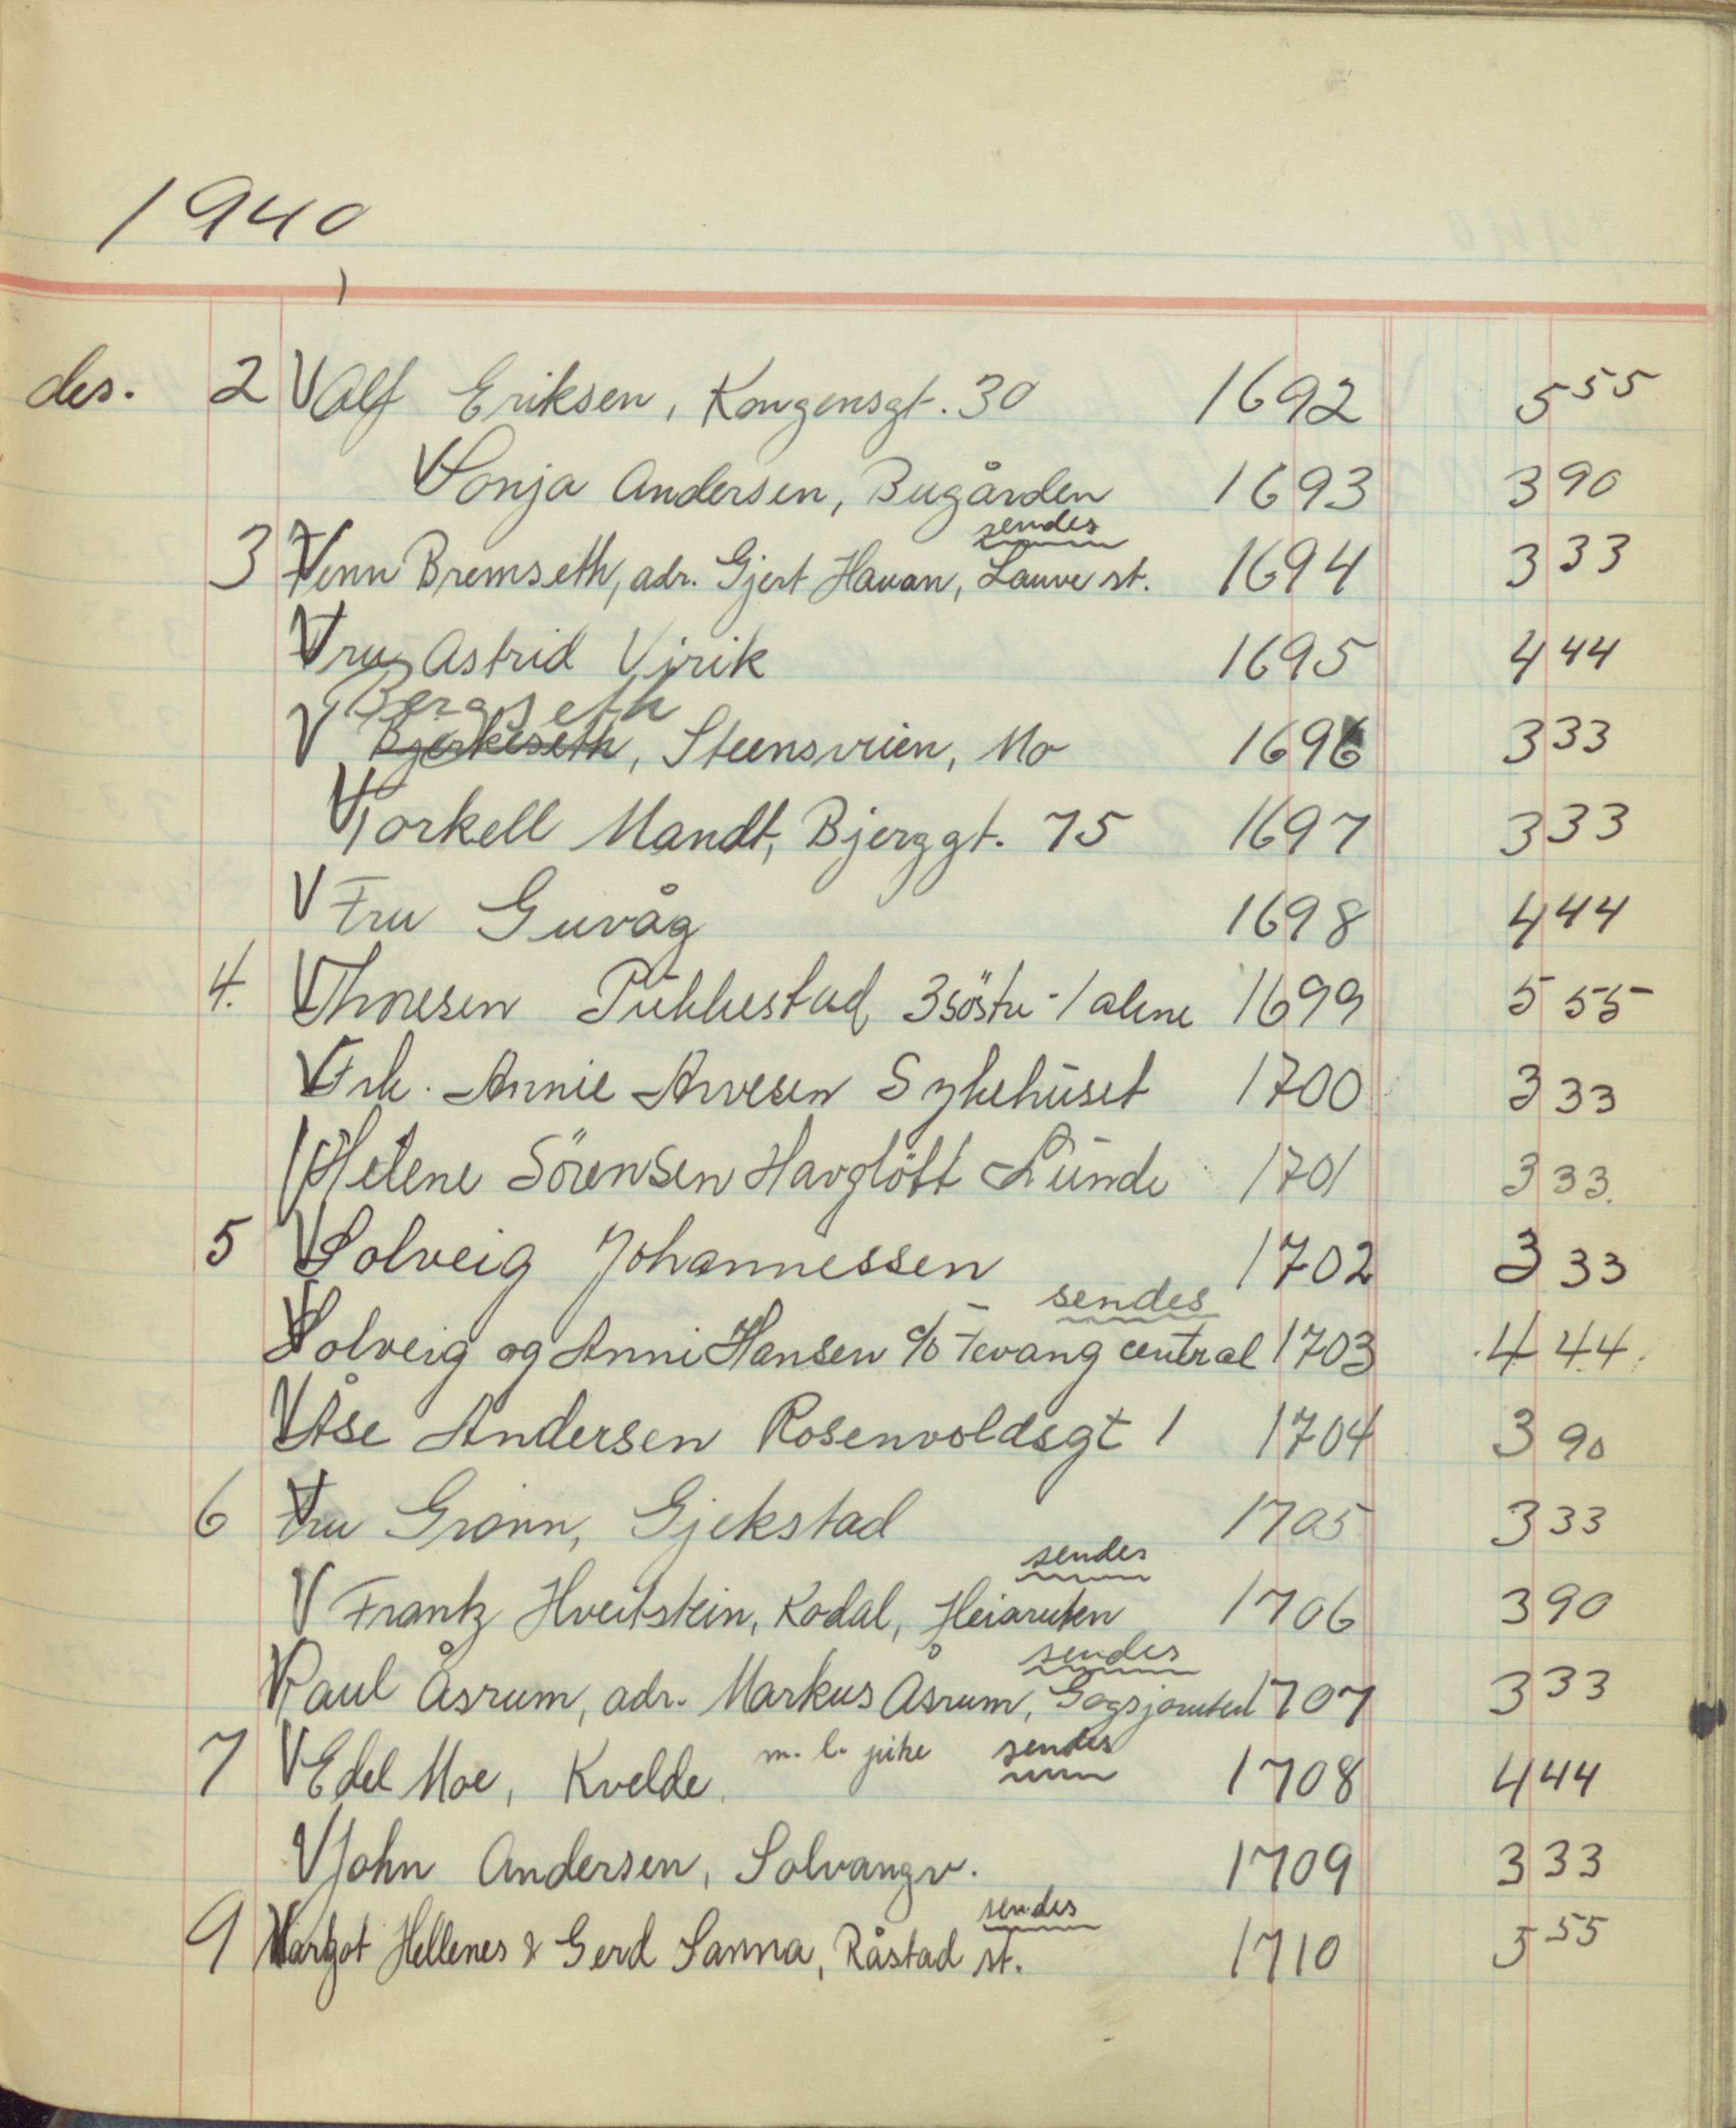 1940
des. 2 V Alf Eriksen, Kongensgt. 30 1692 5 55
V Sonja Andersen, Bugården 1693 3 90
sendes
3 V Fenn Bremseth, adr. Gjert Havan, Lauve st. 1694 3 33
V Fru Astrid Virik 1695 4 44
Bergseth
V Bjerkeseth, Steensveien, Mo 1696 3 33
V Torkell Mandt, Bjerggt. 75 1697 3 33
V Fru Guvåg 1698 4 44
4. V Thoresen Pukkestad, 3 söstre - 1 alene 1699 5 55
V Frk. Annie Arvesen Sykehuset 1700 3 33
V Helene Sörensen Havglött Lunde 1701 3 33.
5 V Solveig Johannessen 1702 3 33
sendes
V Solveig og Anni Hansen c/o Tevang central 1703 4 44
V Åse Andersen Rosenvoldsgt 1 1704 3 90
6 V Fru Grønn, Gjekstad 1705 3 33
sendes
V Frantz Hveitstein, Kodal, Heiaruten 1706 3 90
sendes
V Paul Åsrum, adr. Markus Åsrum, Gogsjøruten 1707 3 33
7 V Edel Moe, Kvelde. m. l. pike sendes 1708 4 44
V John Andersen, Solvangv. 1709 3 33
sendes
9 V Margot Hellenes & Gerd Sanna, Råstad st. 1710 5 55